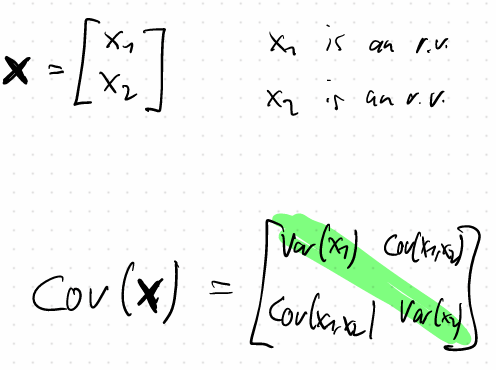 x = [x₁
x₂]
x₁ is an r.v.
x₂ is an r.v.
Cov(x) = [Var(x₁) Cov(x₁,x₂)
Cov(x₁,x₂) Var(x₂)]